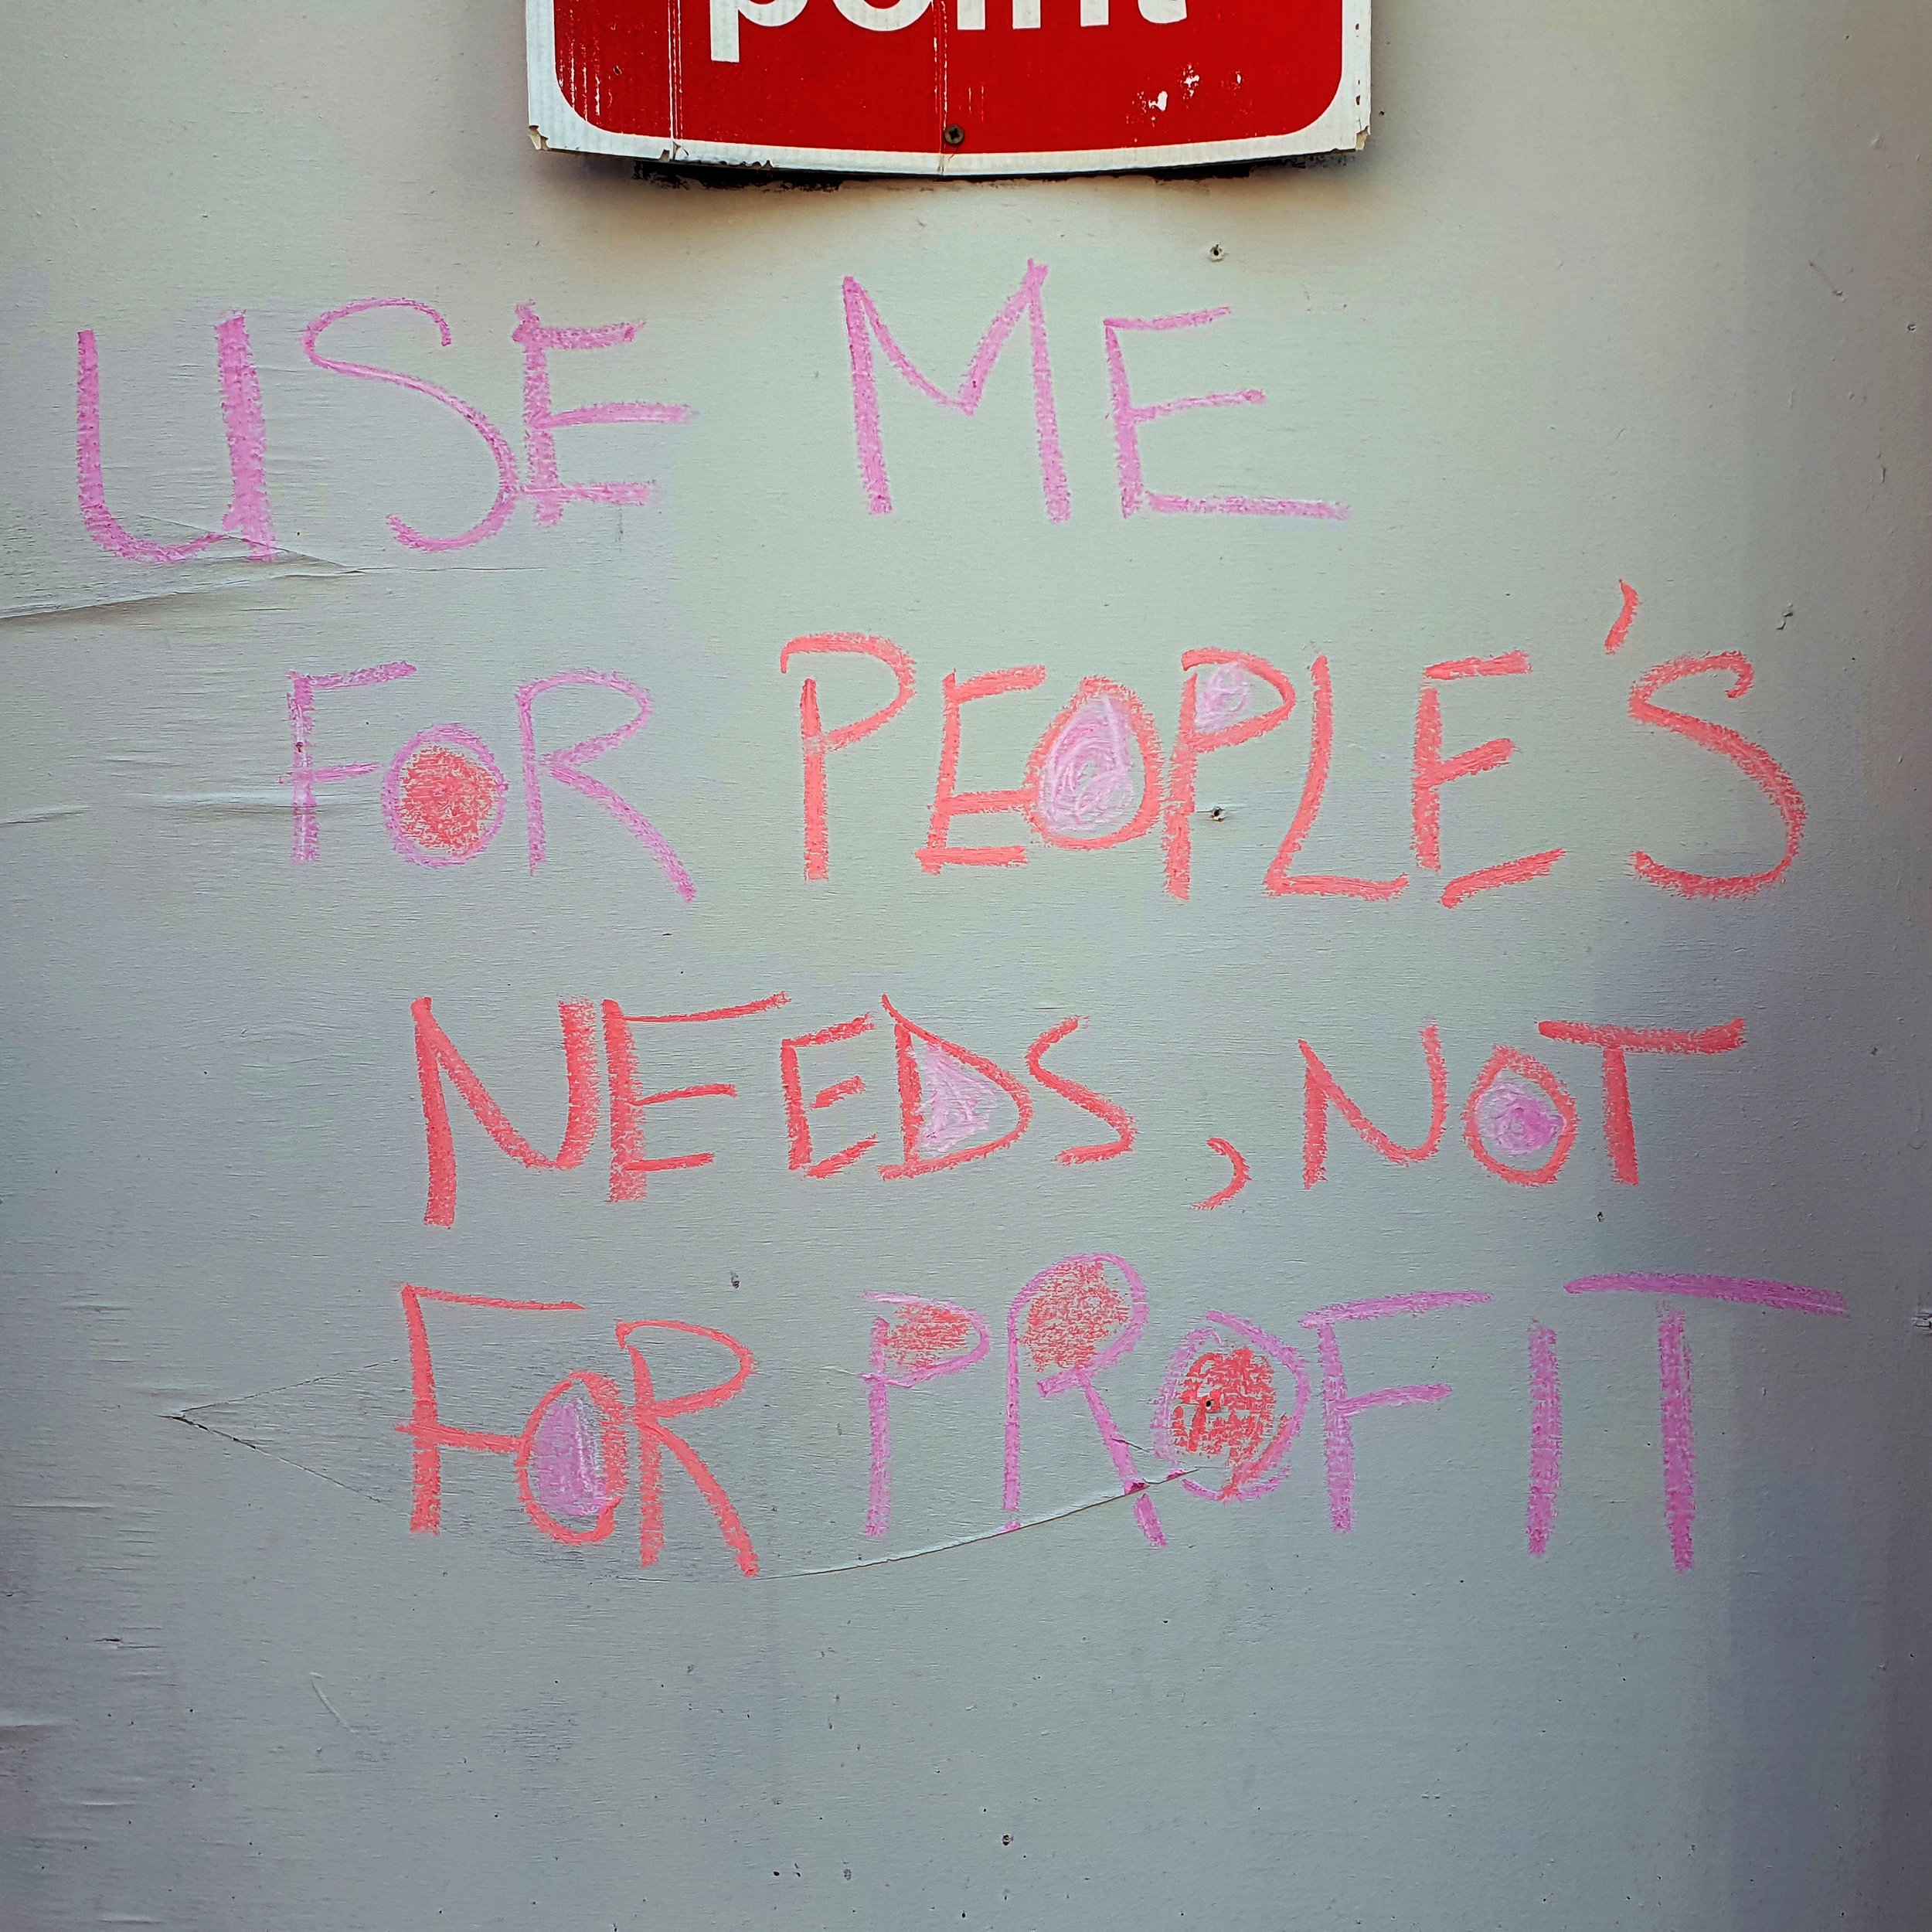 point
USE ME
FOR PEOPLE'S
NEEDS, NOT
FOR PROFIT